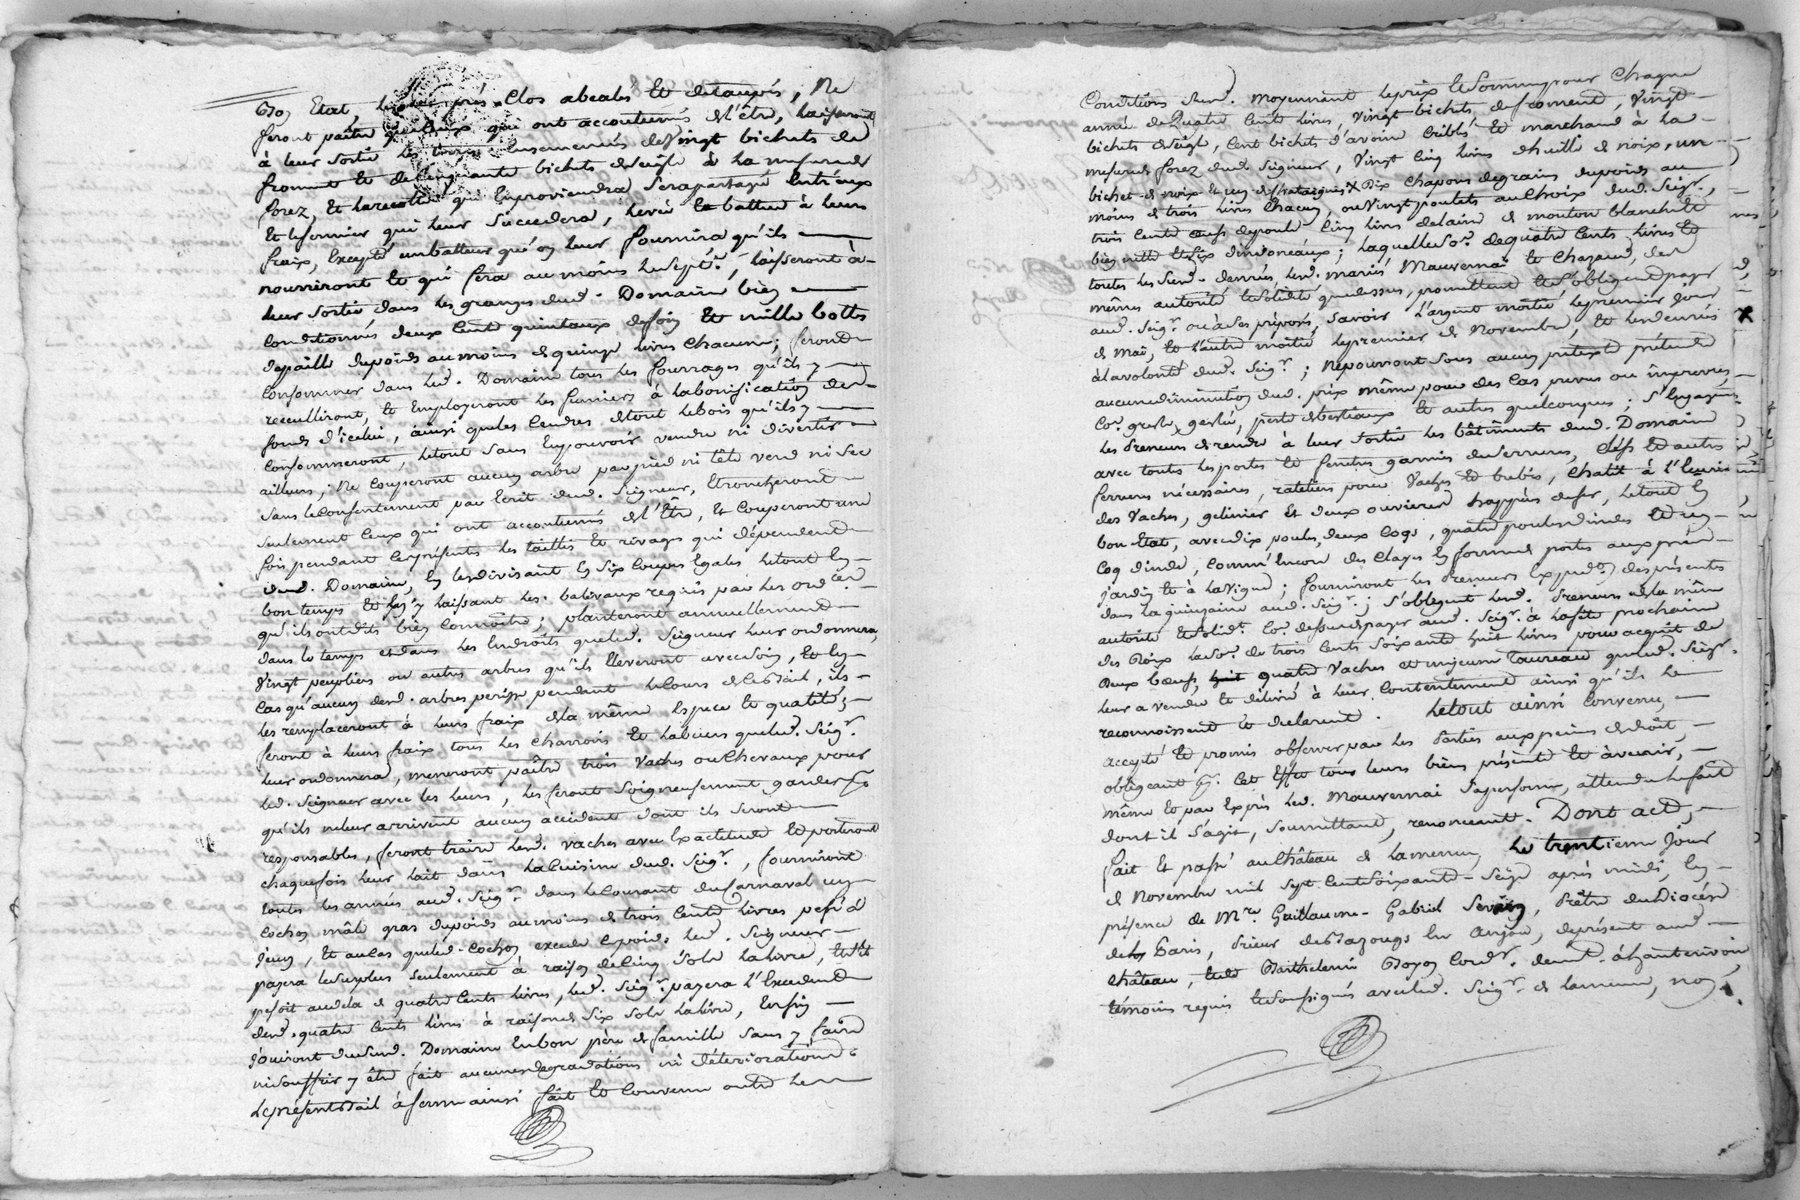 bon Etat, les prés Clos abealés Et detaupés, Ne
feront paître que ceux qui ont accoutumés de l'être, laisseront
à leur sortie les terres Ensemencées de Vingt bichets de
froment Et de Cinquante bichets de seigle à la mesure de
forez, Et la recolte qui En proviendra Sera partagée Entr'eux
Et le fermier qui leur Succedera, levée Et battue à leurs
fraix, Excepté un batteur qu'on leur fournira qu'ils
nourriront Et qui sera au moins le sept.e, laisseront à
leur sortie dans les granges dud. Domaine bien
Conditionnés deux Cent quintaux de foin Et mille bottes
de paille du poids au moins de quinze livres Chacune; feront
Consommer dans led. Domaine tous les fourrages qu'ils y
recueilliront, Et Employeront les fumiers à la bonification des
fonds d'icelui, ainsi que les Cendres de tout le bois qu'ils y
Consommeront, le tout sans En pouvoir vendre ni divertir
ailleurs; Ne Couperont aucun arbre par pied ni tête verd ni sec
sans le Consentement par Ecrit dud. Seigneur, Etroncheront
seulement Ceux qui ont accoutumés de l'Etre, Et Couperont une
fois pendant Ces présentes les taillis Et rivages qui dépendent
dud. Domaine, En les divisant En Six Coupes Egales le tout En
bon temps Et En y laissant les balivaux requis par les ord.ces
qu'ils ont dits bien Connoître; planteront annuellement
dans le temps et dans les Endroits que led. Seigneur leur ordonnera,
Vingt peupliers ou autres arbres qu'ils Eleveront avec soin, Et En
Cas qu'aucun desd. arbres perisse pendant le Cours de Ce Bail, ils
les remplaceront à leurs fraix de la même Espece Et qualité;
feront à leurs fraix tous les Charrois Et labeurs que led. Seig.r
leur ordonnera, meneront paître trois Vaches ou Chevaux pour
led. Seigneur avec les leurs, les feront Soigneusement garder
qu'il n'leur arrivent aucun accident dont ils seront
responsables, feront traire lesd. vaches avec Exactitude Et porteront
chaque fois leur lait dans la Cuisine dud. Seig.r, fourniront
toutes les années aud. Seig.r dans le Courant du Carnaval un
Cochon mâle gras du poids au moins de trois Cents livres pesé à
jeun, Et au Cas que led. Cochon excede Ce poids led. Seigneur
payera le surplus seulement à raison de Cinq Sols la livre, Et s'il
pesoit au dela de quatre Cents livres, led. Seig.r payera l'Excedent
desd. quatre Cents livres à raison de Six Sols la livre, Enfin
jouiront du susd. Domaine En bon père de famille sans y faire
ni souffrir y être fait aucunes degradations ni déteriorations.
Le présent Bail à ferme ainsi fait Et Convenu outre les
Conditions Susd. moyennant le prix Et Somme pour Chaque
année de Quatre Cent livres, Vingt bichets de froment, Vingt
bichets de seigle, Cent bichets d'avoine Criblés Et marchand à la
mesure de forez dud. Seigneur, Vingt Cinq livres d'huille de noix, un
bichet de noix Et un de chataignes, Dix Chapons de grains du poids au
moins de trois livres Chacun, ou Vingt poulets au Choix dud. Seigr.,
trois Cents œufs de poule, Cinq livres de laine de mouton blanche Et
bien nette Et Six dindonneaux; laquelle So.e de quatre Cents livres Et
toutes les Susd. denrées lesd. mariés Mauvernai Et Chazaud, des
mêmes autorité Et solidité que dessus, promettent Et s'obligent payer
aud. Seig.r ou à Ses préposés, Savoir l'argent moitié le premier Jour
de Mai, Et l'autre moitié le premier de Novembre, Et les denrées
à la volonté dud. Seig.r; Ne pourront sous aucun pretexte prétendre
aucune diminution dud. prix même pour des Cas prevus ou imprevus,
Co.e grêle, gelée, perte de bestiaux Et autres quelconques; S'Engagent
les Preneurs de rendre à leur sortie les bâtiments dud. Domaine
avec toutes les portes Et fenêtres garnies de serrures, Clefs Et autres
ferrures nécessaires, rateliers pour Vaches Et brebis, Chatit à l'Ecurie
des Vaches, gelinier Et deux ouvieres happées de fer, le tout En
bon Etat, avec dix poules, deux Coqs, quatre poules d'indes Et un
Coq d'inde, Comm'Encore des Clayes En forme de portes aux prés
jardin Et à la Vigne; fourniront les Preneurs Expéd.on des présentes
dans la quinzaine aud. Seig.r; S'obligent lesd. Preneurs de la même
autorité Et solid.té Co.e dessus de payer aud. Seig.r à la fête prochaine
des Roix la So.e de trois Cents Soixante huit livres, pour acquit de
Deux bœufs, quatre Vaches et un jeune Taureau que led. Seigr.
leur a vendu Et délivré à leur Contentement ainsi qu'ils le
reconnoissent Et declarent. Le tout ainsi Convenu,
accepté Et promis observer par les Parties aux peines de droit,
obligeant à Cet Effet tous leurs biens présents Et à venir,
même Et par Exprès led. Mauvernai Sa personne, attendu le fait
dont il S'agit, soumettant, renonceant. Dont acte,
fait Et passé au Château de Lamenue, Le trentieme Jour
de Novembre mil Sept Cent Soixante-Seize après midi, En
présence de M.re Guillaume-Gabriel, Prêtre du Diocése
de Paris, Prieur de Bazouges En Anjou, de présent aud.
Château, Et de Barthelemi Boyon Cord.r
témoins requis Et soussignés avec led. Seig.r de Lamenue, non